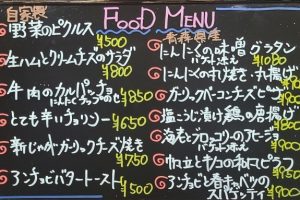 FOOD MENU
自家製
野菜のピクルス ¥500
生ハムとクリームチーズのサラダ ¥800
牛肉のカルパッチョ
にんにくチップのせ ¥850
とても辛いチョリソー ¥650
新じゃがガーリックチーズ焼き ¥750
アンチョビバタートースト ¥500
青森県産
にんにくの味噌グラタン
バケット添え ¥1080
にんにくの丸焼き・丸揚げ
ガーリックベーコンピザ
塩こうじ漬け鶏の唐揚げ
海老とブロッコリーのアヒージョ
バケット添え ¥900
帆立とキノコの和風ピラフ
アンチョビと春キャベツの
スパゲッティ